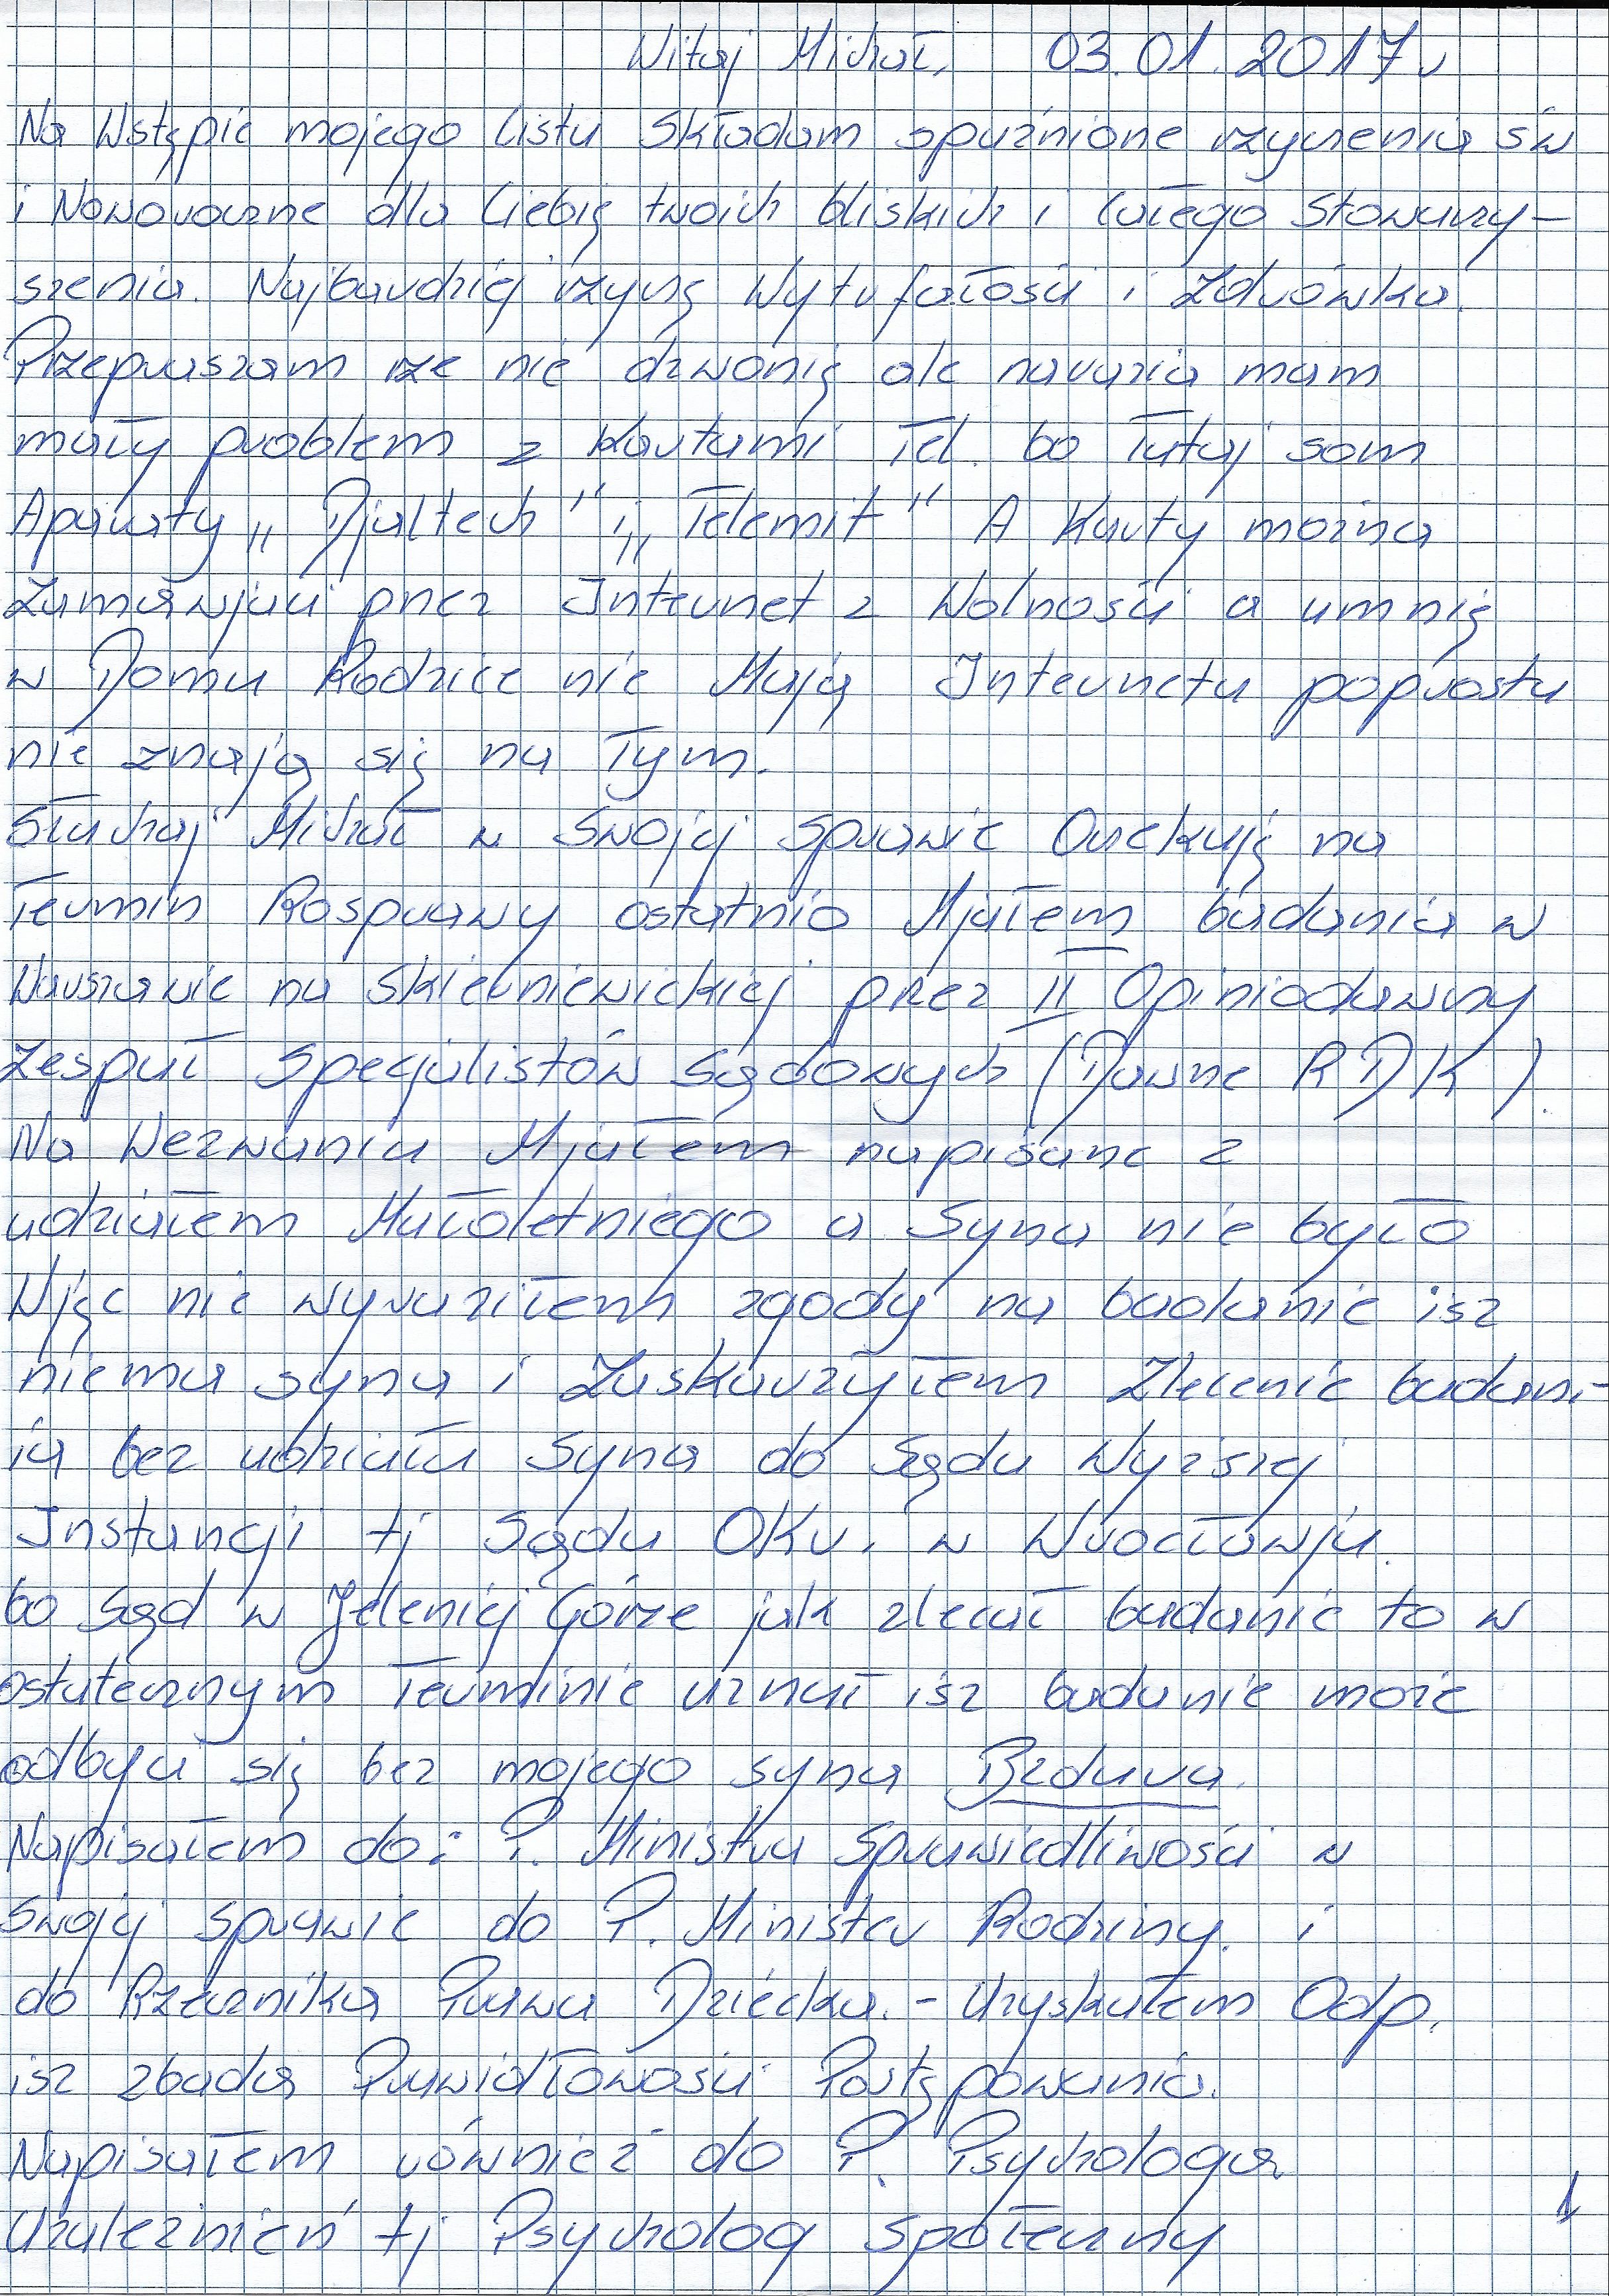 Witaj Michał, 03.01.2017r
Na Wstępie mojego Listu Składam spuźnione rzyczenia św
i Noworoczne dla Ciebię twoich bliskich i całego Stowarzy-
szenia. Najbardziej rzyczę Wytrfałości i Zdrówka.
Przepraszam rze nie dzwonię ale narazia mam
mały problem z Kartami Tel. bo Tutaj som
Aparaty „Djaltech" i „Telemit" A Karty można
Zamawjać przez Internet z Wolności a umnię
w Domu Rodzice nie Mają Internetu poprostu
nie znają się na Tym.
Słuchaj Michał w Swojej Sprawie Oczekuję na
Termin Rosprawy ostatnio Mjałem badania w
Warszawie na Skierniewickiej przez II Opiniodawczy
Zespuł Specjalistów Sądowych (Dawne RDK).
Na Wezwaniu Mjałem napisane z
udziałem Małoletniego a Syna nie było
Wjęc nie wyraziłem zgody na badanie isz
niema syna i Zaskarżyłem Zlecenie badani-
ia bez udziału Syna do Sądu Wyższej
Instancji tj Sądu Okr. w Wrocławju.
bo Sąd w Jeleniej Górze jak zlecał badanie to w
ostatecznym Terminie uznał isz badanie może
odbyć się bez mojego syna Bzdura.
Napisałem do: P. Ministra Sprawiedliwości w
Swojej sprawie do P. Minister Rodziny. i
do Rzecznika Prawa Dziecka. - Uzyskałem Odp.
isz zbada Prawidłowości Postępowania.
Napisałem również do P. Psychologa
Uzależnień tj Psycholog Społeczny
1